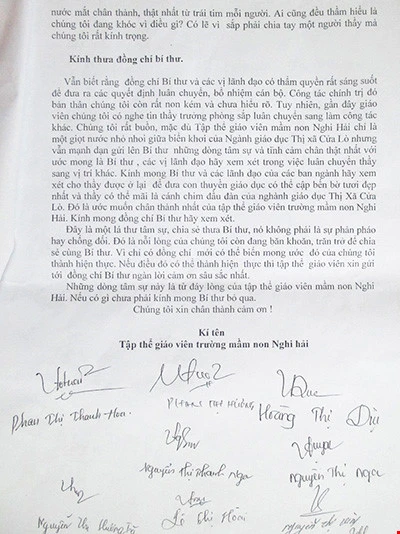 nước mắt chân thành, thật nhất từ trái tim mỗi người. Ai cũng đều thầm hiểu là
chúng tôi đang khóc vì điều gì? Có lẽ vì sắp phải chia tay một người thầy mà
chúng tôi rất kính trọng.
Kính thưa đồng chí bí thư.
Vẫn biết rằng đồng chí Bí thư và các vị lãnh đạo có thẩm quyền rất sáng suốt
để đưa ra các quyết định luân chuyển, bổ nhiệm cán bộ. Công tác chính trị đó
bản thân chúng tôi còn rất non kém và chưa hiểu rõ. Tuy nhiên, gần đây giáo
viên chúng tôi có nghe tin thầy trưởng phòng sắp luân chuyển sang làm công tác
khác. Chúng tôi rất buồn, mặc dù Tập thể giáo viên mầm non Nghi Hải chỉ là
một giọt nước nhỏ nhoi giữa biển khơi của Ngành giáo dục Thị xã Cửa Lò nhưng
vẫn mạnh dạn gửi lên Bí thư những dòng tâm sự và tình cảm chân thật nhất với
ước mong là Bí thư , các vị lãnh đạo hãy xem xét trong việc luân chuyển thầy
sang vị trí khác. Kính mong Bí thư và các lãnh đạo của các ban ngành hãy xem
xét cho thầy được ở lại để đưa con thuyền giáo dục có thể cập bến bờ tươi đẹp
nhất và thầy có thể mãi là cánh chim đầu đàn của nghành giáo dục Thị Xã Cửa
Lò. Đó là ước muốn chân thành nhất của tập thể giáo viên trường mầm non Nghi
Hải. Kính mong đồng chí Bí thư hãy xem xét.
Đây là một lá thư tâm sự, chia sẻ thưa Bí thư, nó không phải là sự phản pháo
hay chống đối. Đó là nỗi lòng của chúng tôi còn đang băn khoăn, trăn trở để chia
sẻ cùng Bí thư. Vì chỉ có đồng chí mới có thể biến mong ước đó của chúng tôi
thành hiện thực. Nếu điều đó có thể thành hiện thực thì tập thể giáo viên xin gửi
tới đồng chí Bí thư ngàn lời cảm ơn sâu sắc nhất.
Những dòng tâm sự này là từ đáy lòng của tập thể giáo viên mầm non Nghi
Hải. Nếu có gì chưa phải kính mong Bí thư bỏ qua.
Chúng tôi xin chân thành cảm ơn !
Kí tên
Tập thể giáo viên trường mầm non Nghi hải
Phan Thị Thanh-Hoa
PHÙNG THỊ HƯỜNG
Hoàng Thị Dịu
Nguyễn Thị Thanh Nga
Nguyễn Thị Nga
Nguyễn Thị Hương
Lê Thị Hoài
Nguyễn Thị